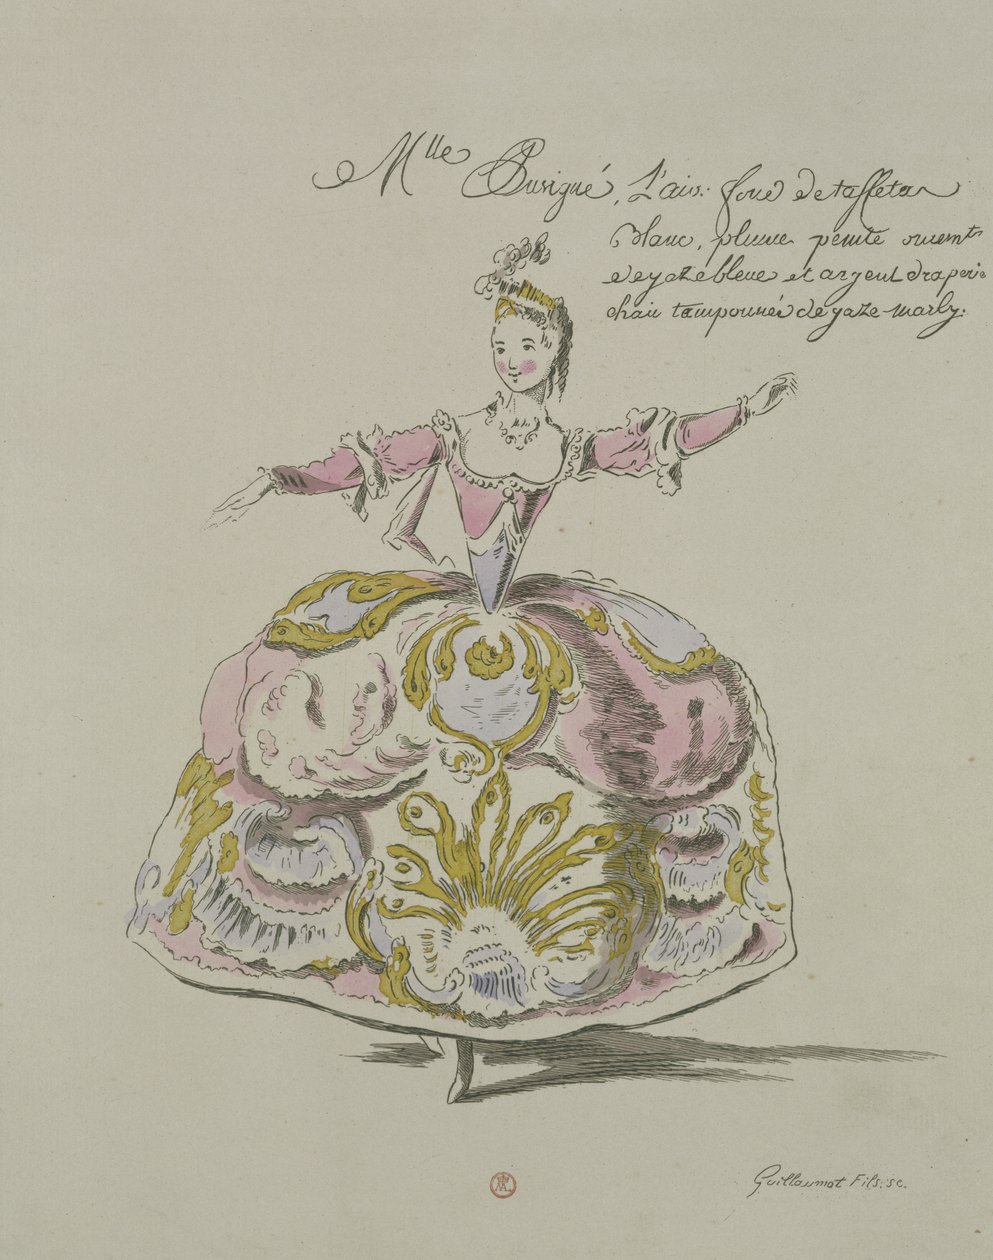 Mlle Puvigné, L'air. fond de taffetas
blanc, plume peinte ornemts
de gaze bleue et argent draperie
chair tamponnée de gaze marly.
Guillaumot Fils. sc.